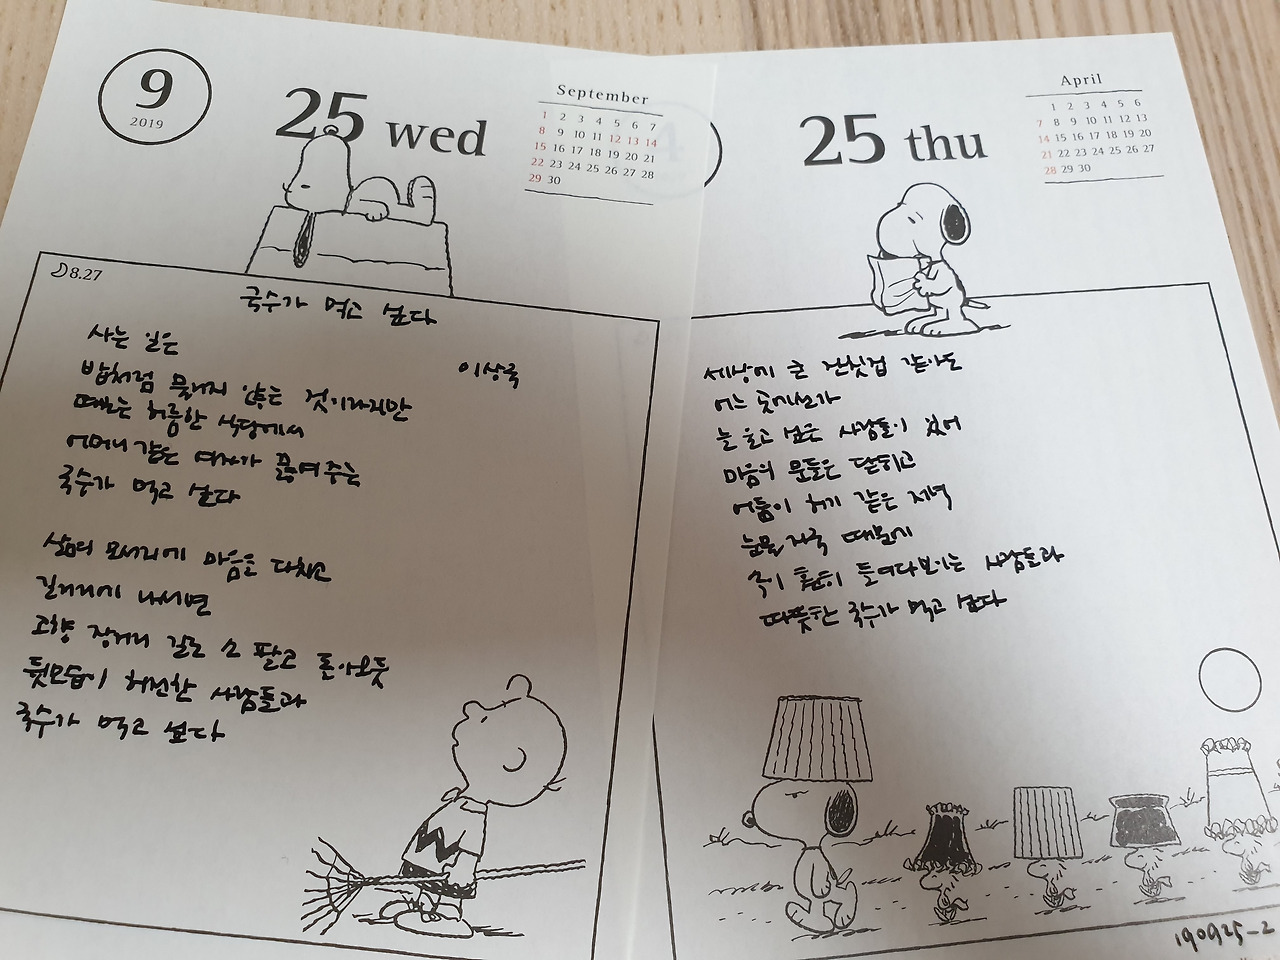 9
2019
25 wed
September
1 2 3 4 5 6 7
8 9 10 11 12 13 14
15 16 17 18 19 20 21
22 23 24 25 26 27 28
29 30
8.27
국수가 먹고 싶다
이상국
사는 일은
밥처럼 물리지 않는 것이라지만
때로는 허름한 식당에서
어머니 같은 여자가 끓여주는
국수가 먹고 싶다
삶의 모서리에 마음을 다치고
길거리에 나서면
고향 장거리 길로 소 팔고 돌아오듯
뒷모습이 허전한 사람들과
국수가 먹고 싶다
4
25 thu
April
1 2 3 4 5 6
7 8 9 10 11 12 13
14 15 16 17 18 19 20
21 22 23 24 25 26 27
28 29 30
세상이 큰 잔칫집 같아도
어느 곳에선가
늘 울고 싶은 사람들이 있어
마음의 문들은 닫히고
어둠이 허기 같은 저녁
눈물자국 때문에
속이 훤히 들여다보이는 사람들과
따뜻한 국수가 먹고 싶다
190925-2